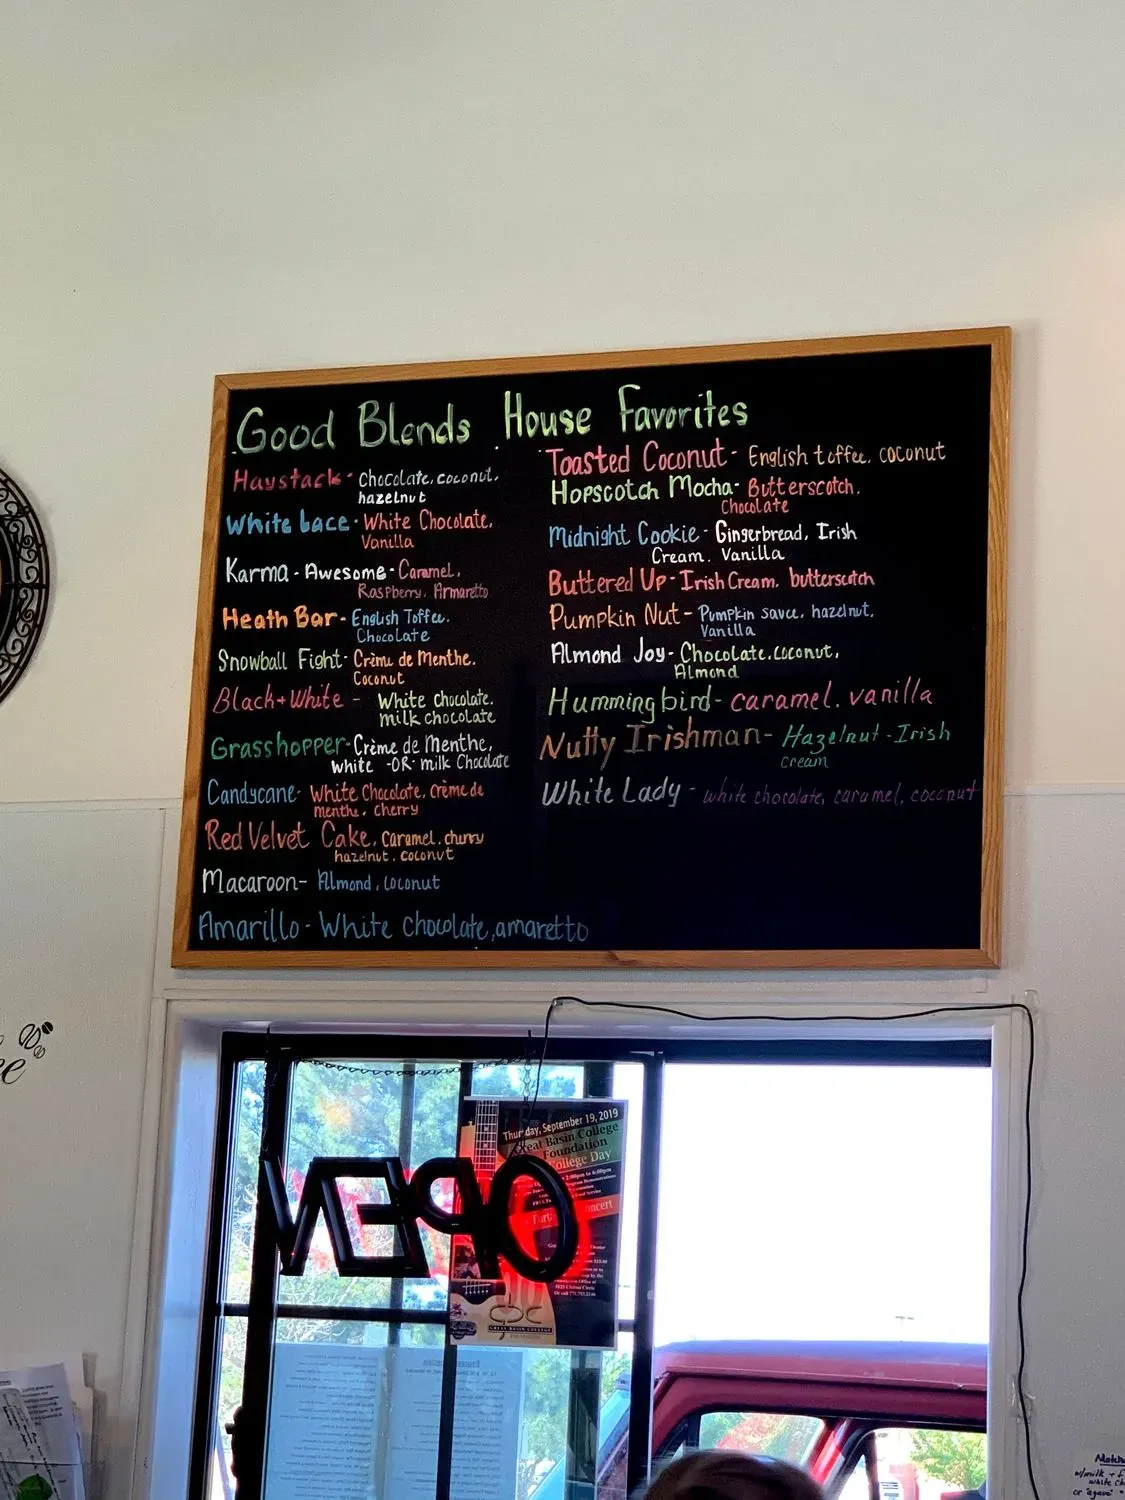 Good Blends House Favorites
Haystack - Chocolate, coconut,
hazelnut
White Lace - White Chocolate,
Vanilla
Karma - Awesome - Caramel,
Raspberry, Armaretto
Heath Bar - English Toffee,
Chocolate
Snowball Fight - Crème de Menthe,
Coconut
Black + White - White chocolate,
milk chocolate
Grasshopper - Crème de Menthe,
white -OR- milk Chocolate
Candycane - White Chocolate, crème de
menthe, cherry
Red Velvet Cake, Caramel, cherry
hazelnut, coconut
Macaroon - Almond, coconut
Amarillo - White chocolate, amaretto
Toasted Coconut - English toffee, coconut
Hopscotch Mocha - Butterscotch,
Chocolate
Midnight Cookie - Gingerbread, Irish
Cream, Vanilla
Buttered Up - Irish Cream, butterscotch
Pumpkin Nut - Pumpkin sauce, hazelnut,
Vanilla
Almond Joy - Chocolate, coconut,
Almond
Hummingbird - caramel, vanilla
Nutty Irishman - Hazelnut - Irish
cream
White Lady - white chocolate, caramel, coconut
OPEN
Thursday, September 19, 2019
Great Basin College
Foundation
College Day
GREAT BASIN COLLEGE